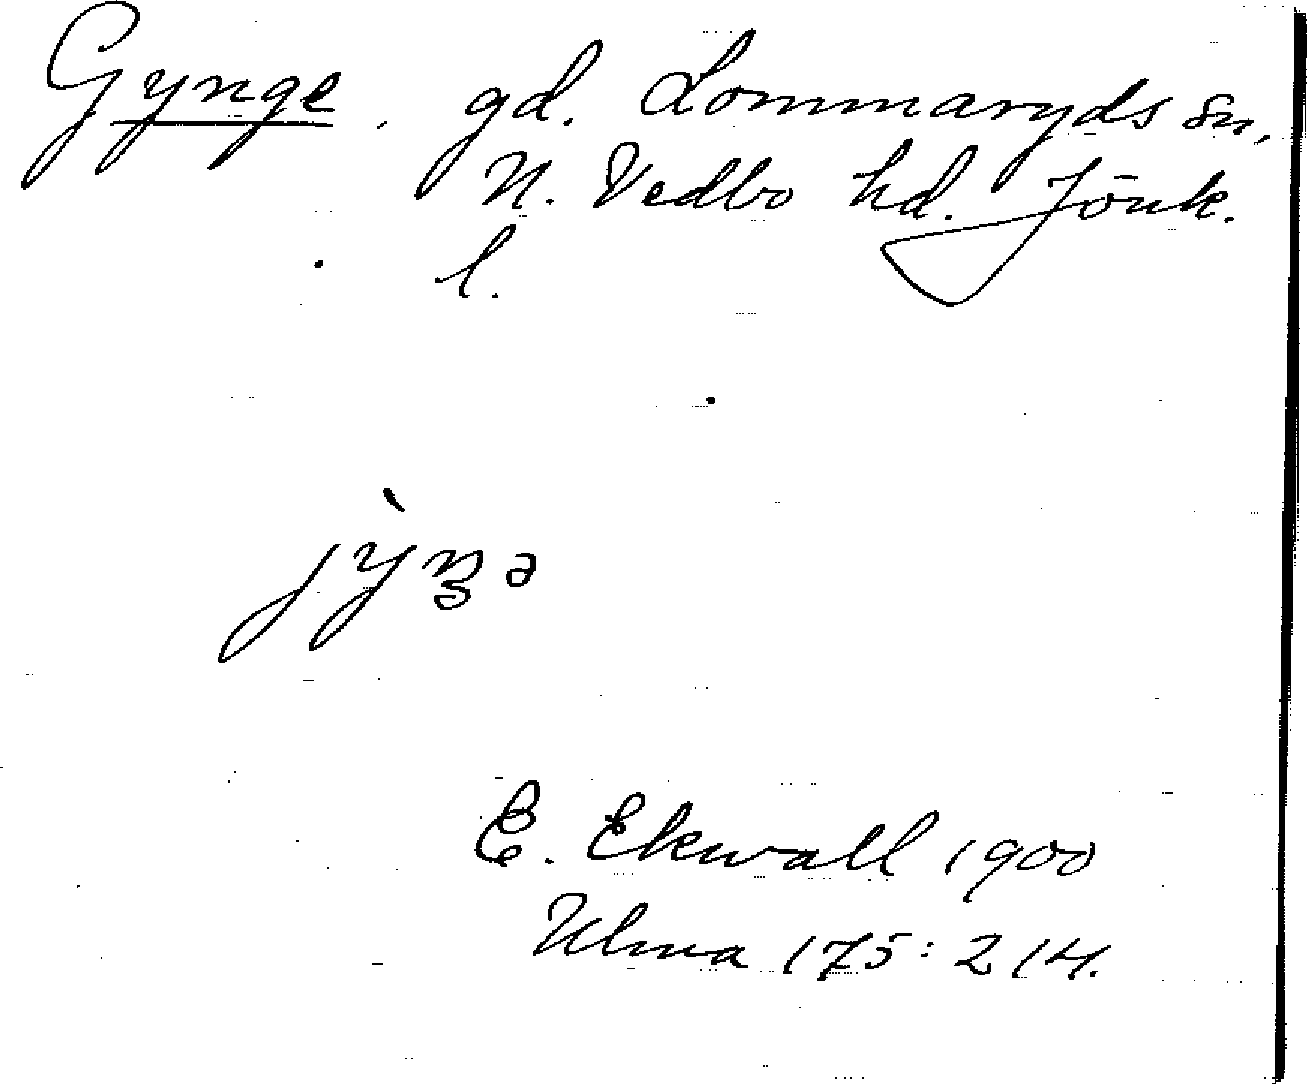 Gynge. gd. Lommaryds sn,
N. Vedbo hd. Jönk.
l.
E. Ekwall 1900
Ulma 175:214.